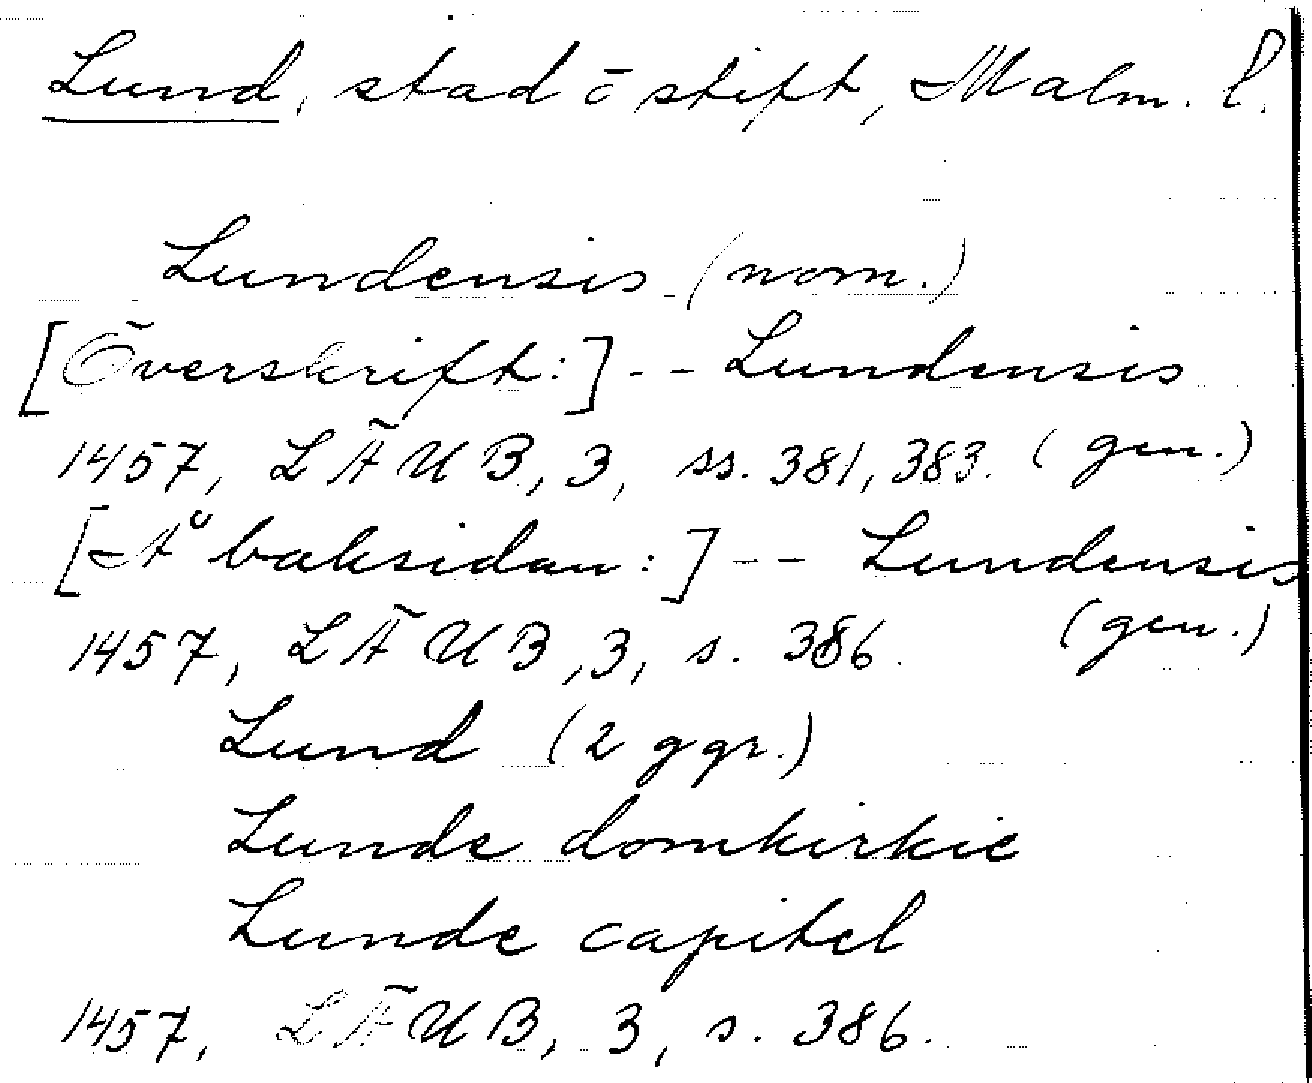 Lund, stad o stift, Malm. l.
Lundensis (nom.)
[Överskrift:] -- Lundensis
1457, LÄUB, 3, ss. 381, 383. (gen.)
[Å baksidan:] -- Lundensis
1457, LÄUB, 3, s. 386. (gen.)
Lund (2 ggr.)
Lunde domkirkie
Lunde capitel
1457, LÄUB, 3, s. 386.